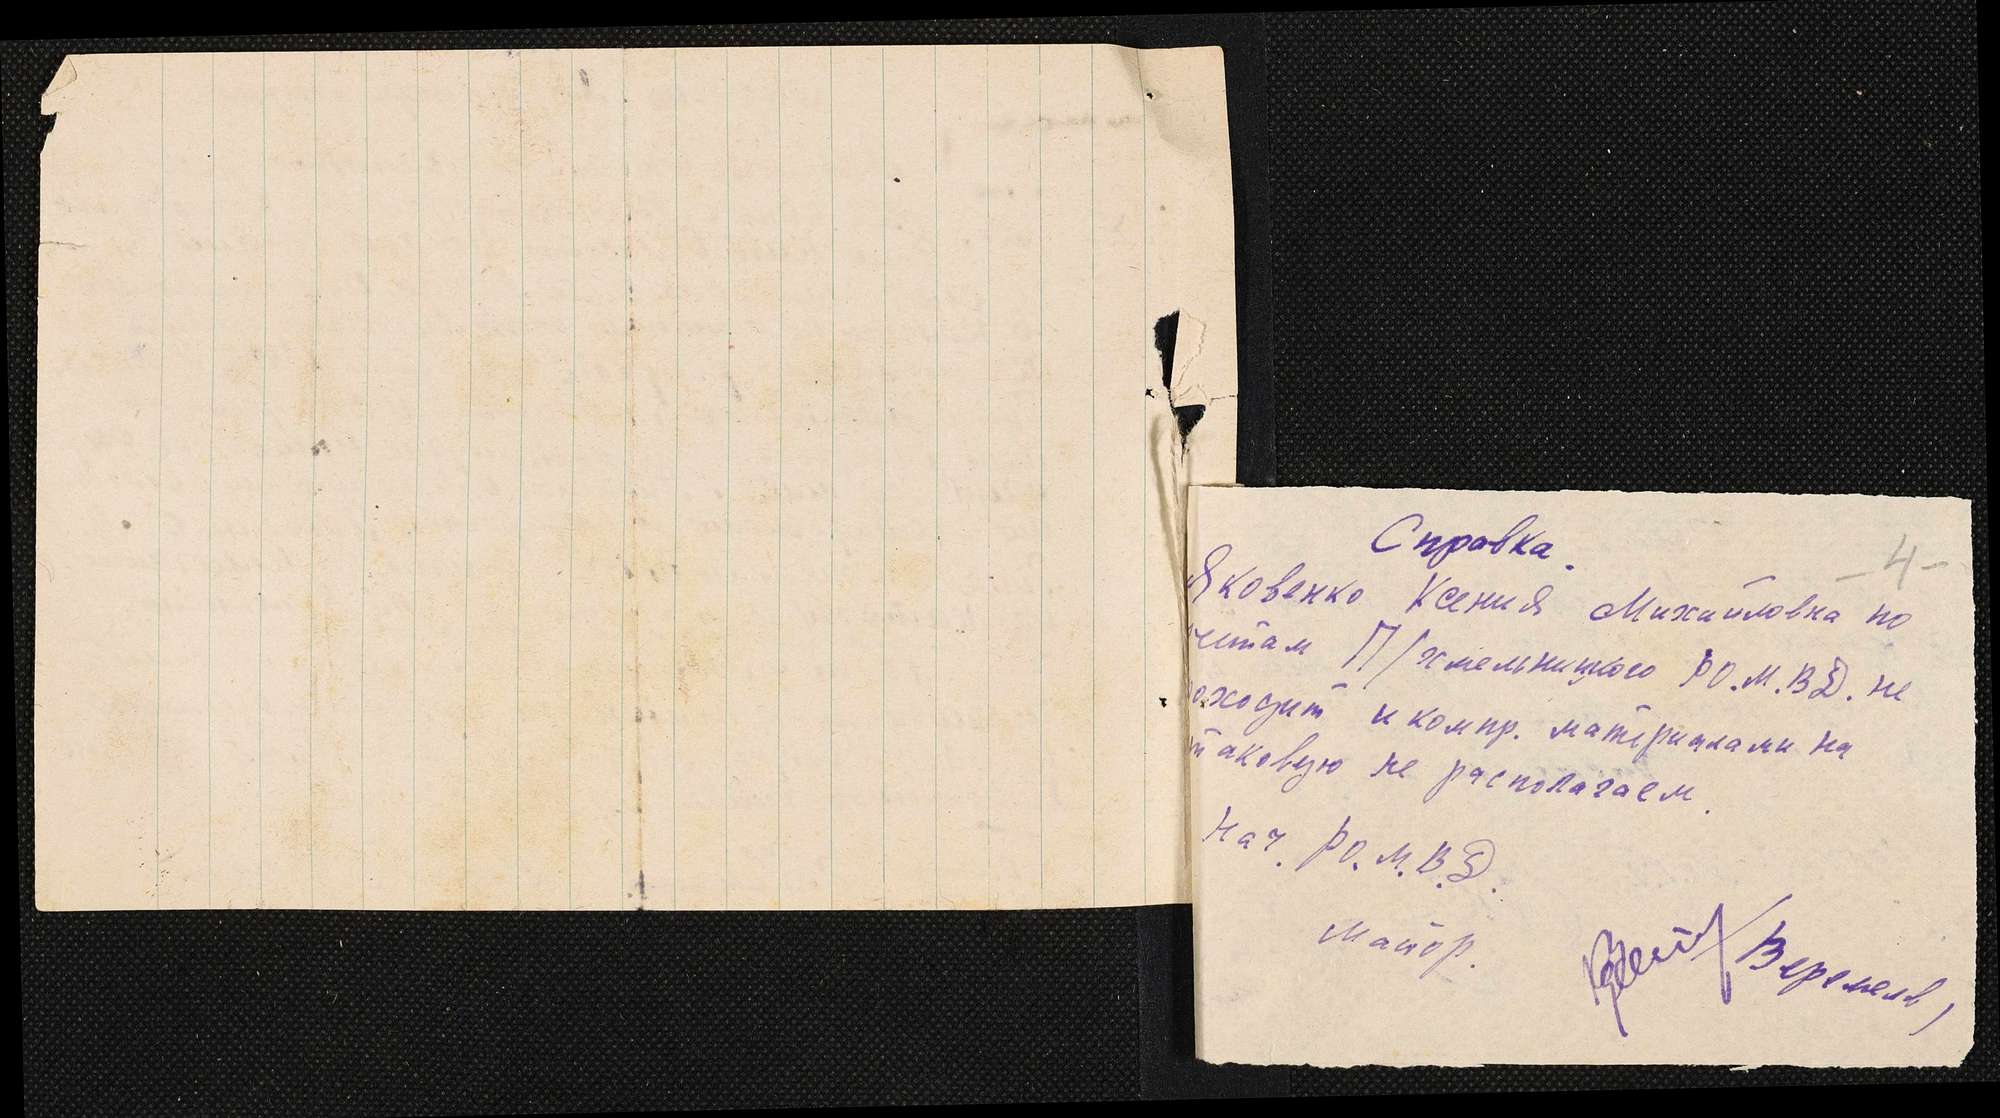 -4-
Справка.
Яковенко Ксения Михайловна по
учетам П/хмельницкого РО.М.ВД. не
проходит и компр. материалами на
таковую не располагаем.
Нач. РО.М.В.Д.
Майор.
/Веремеев/